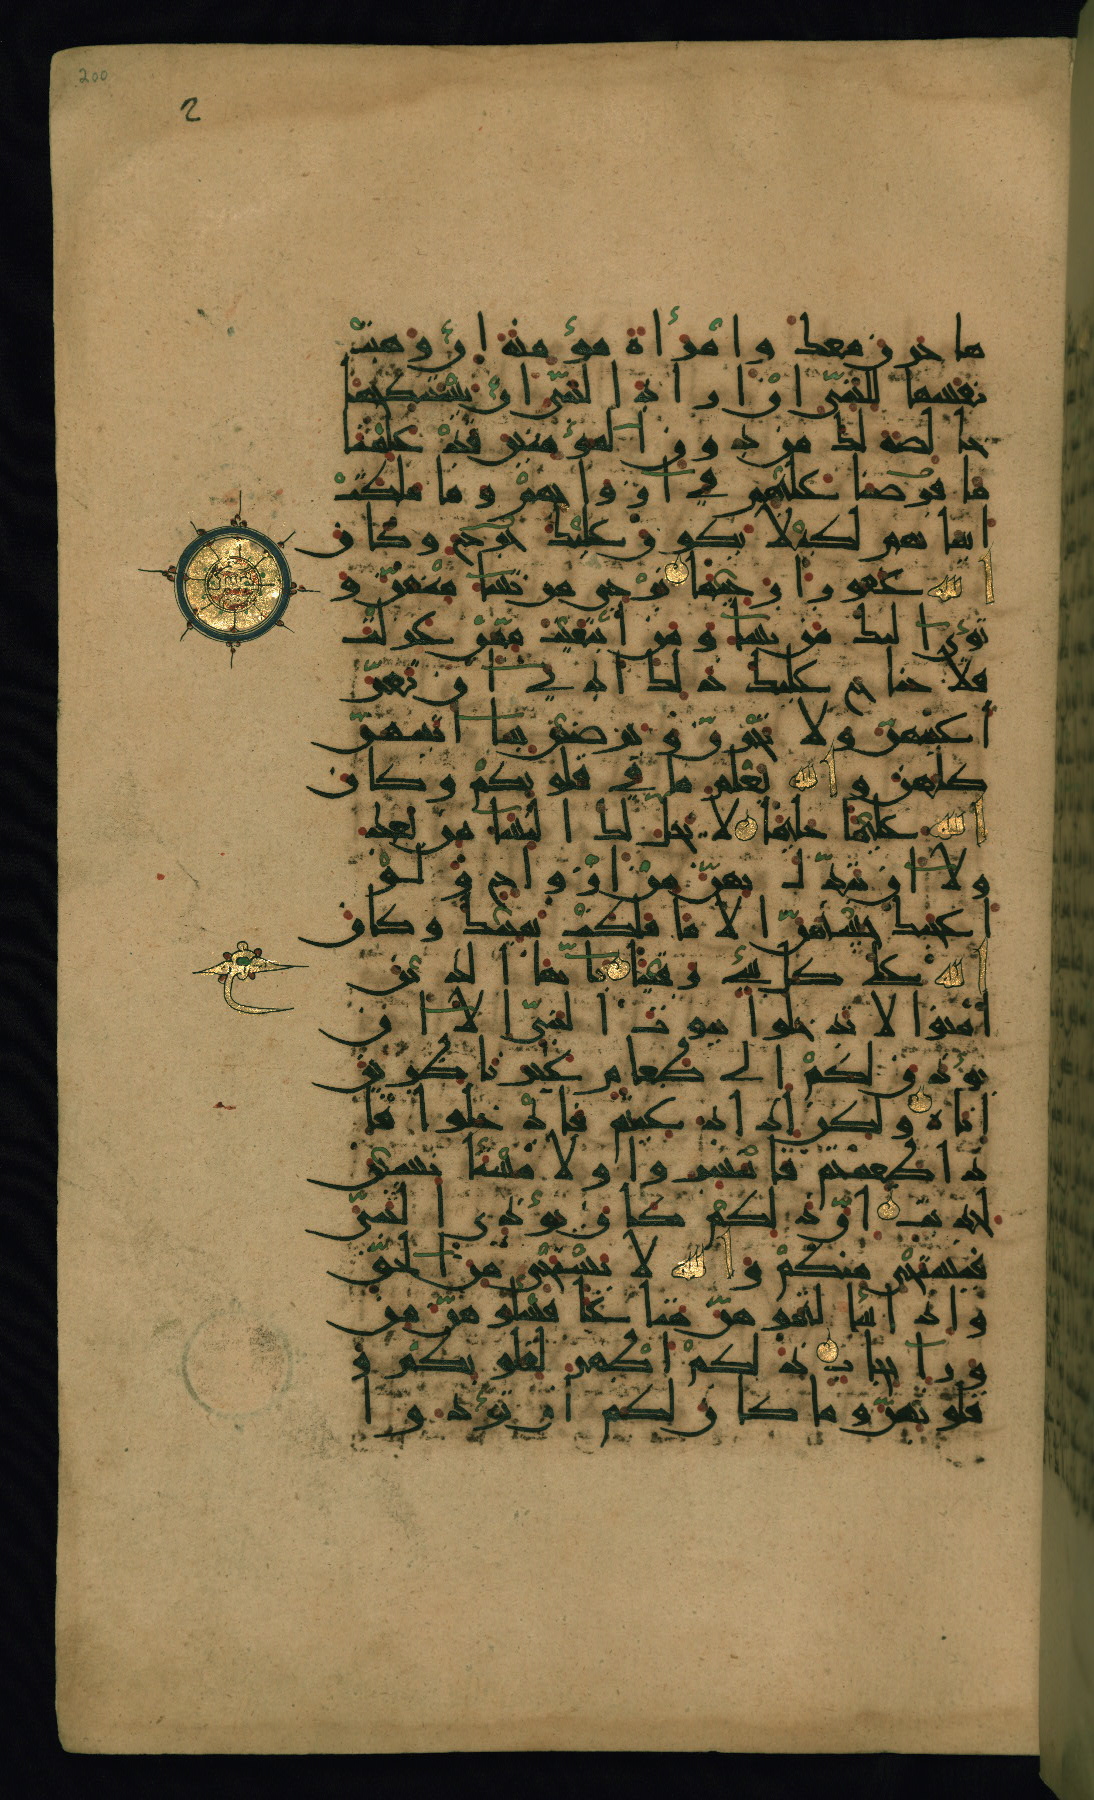 200
2
هاجرن معك وامرأة مؤمنة ان وهبت
نفسها للنبي ان اراد النبي ان يستنكحها
خالصة لك من دون المؤمنين قد علمنا
ما فرضنا عليهم في ازواجهم وما ملكت
ايمانهم لكيلا يكون عليك حرج وكان
الله غفورا رحيما ترجي من تشا منهن و
تؤي اليك من تشا ومن ابتغيت ممن عزلت
فلا جناح عليك ذلك ادنى ان تقر
اعينهن ولا يحزن ويرضين بما اتيتهن
كلهن والله يعلم ما في قلوبكم وكان
الله عليما حليما لا يحل لك النسا من بعد
ولا ان تبدل بهن من ازواج ولو
اعجبك حسنهن الا ما ملكت يمينك وكان
الله على كل شيء رقيبا يايها الذين
امنوا لا تدخلوا بيوت النبي الا ان
يؤذن لكم الى طعام غير ناظرين
اناه ولكن اذا دعيتم فادخلوا فا
ذا طعمتم فانتشروا ولا مستأنسين
لحديث ان ذلكم كان يؤذي النبي
فيستحي منكم والله لا يستحي من الحق
واذا سألتموهن متاعا فسئلوهن من
ورا حجاب ذلكم اطهر لقلوبكم و
قلوبهن وما كان لكم ان تؤذوا